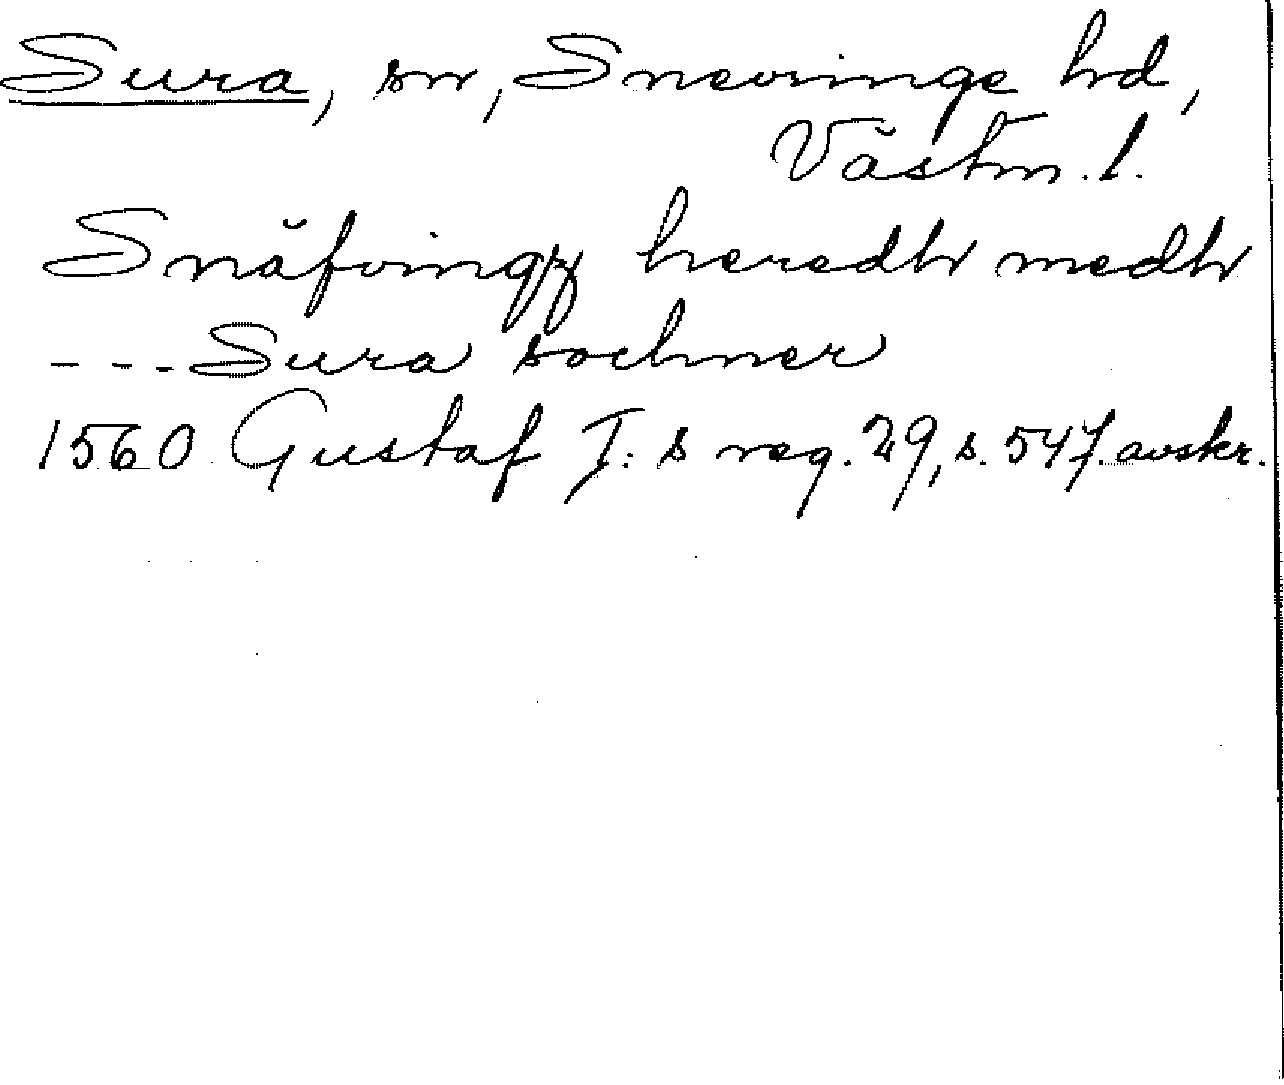 Sura, sn, Snevringe hd,
Västm. l.
Snäfvingz heredh medh
--- Sura sochner
1560 Gustaf I:s reg. 29, s. 547. avskr.